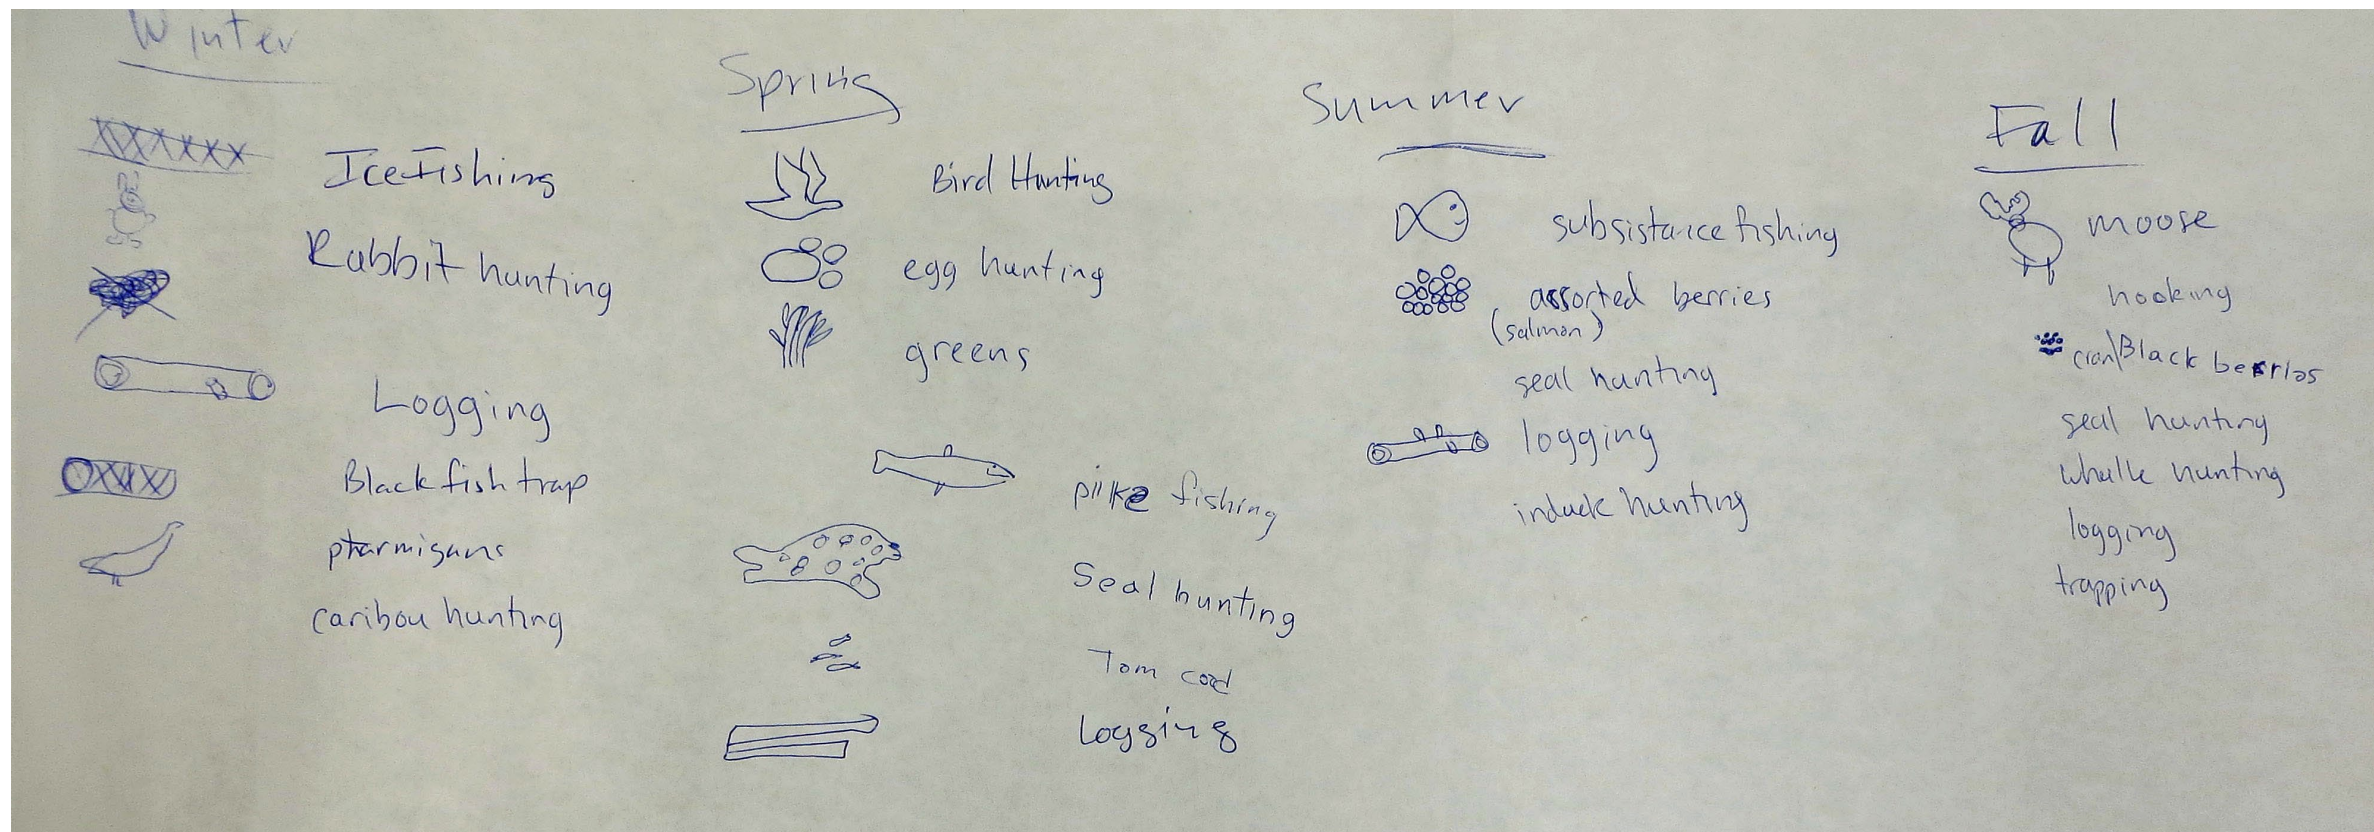 Winter
Ice Fishing
Rabbit hunting
Logging
Black fish trap
ptarmigans
caribou hunting
Spring
Bird Hunting
egg hunting
greens
piike fishing
Seal hunting
Tom cod
Logging
Summer
subsistance fishing
assorted berries
(salmon)
seal hunting
logging
induck hunting
Fall
moose
hooking
cran\Black berries
seal hunting
whalle hunting
logging
trapping